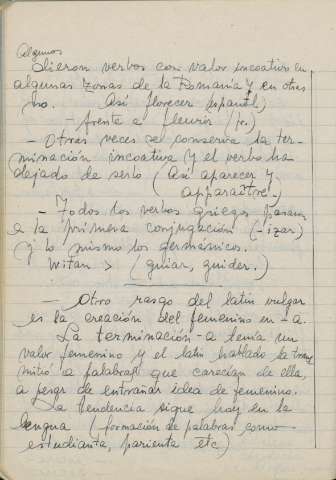 Algunos
dieron verbos con valor incoativo en
algunas zonas de la Romania y en otras
no. Así florecer (español)
- frente a fleurir (fr.)
- Otras veces se conserva la ter-
minación incoativa (y el verbo ha
dejado de serlo (Así aparecer y
apparaître.)
- Todos los verbos griegos pasan
a la primera conjugación (-izar)
y lo mismo los germánicos.
witan > (guiar, guider.)
- Otro rasgo del latín vulgar
es la creación del femenino en -a.
La terminación -a tenía un
valor femenino y el latín hablado la trans
mitió a palabras que carecían de ella,
a pesar de entrañar idea de femenino.
La tendencia sigue hoy en la
lengua (formación de palabras como
estudianta, parienta etc)